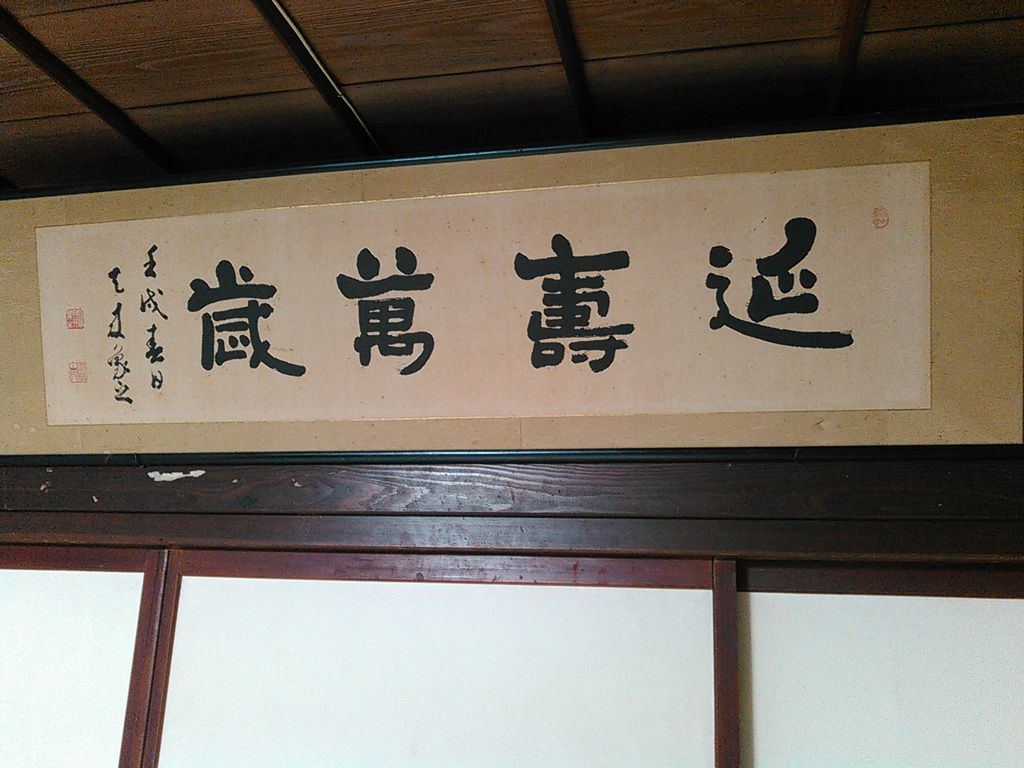 延壽萬歲
壬戌春日